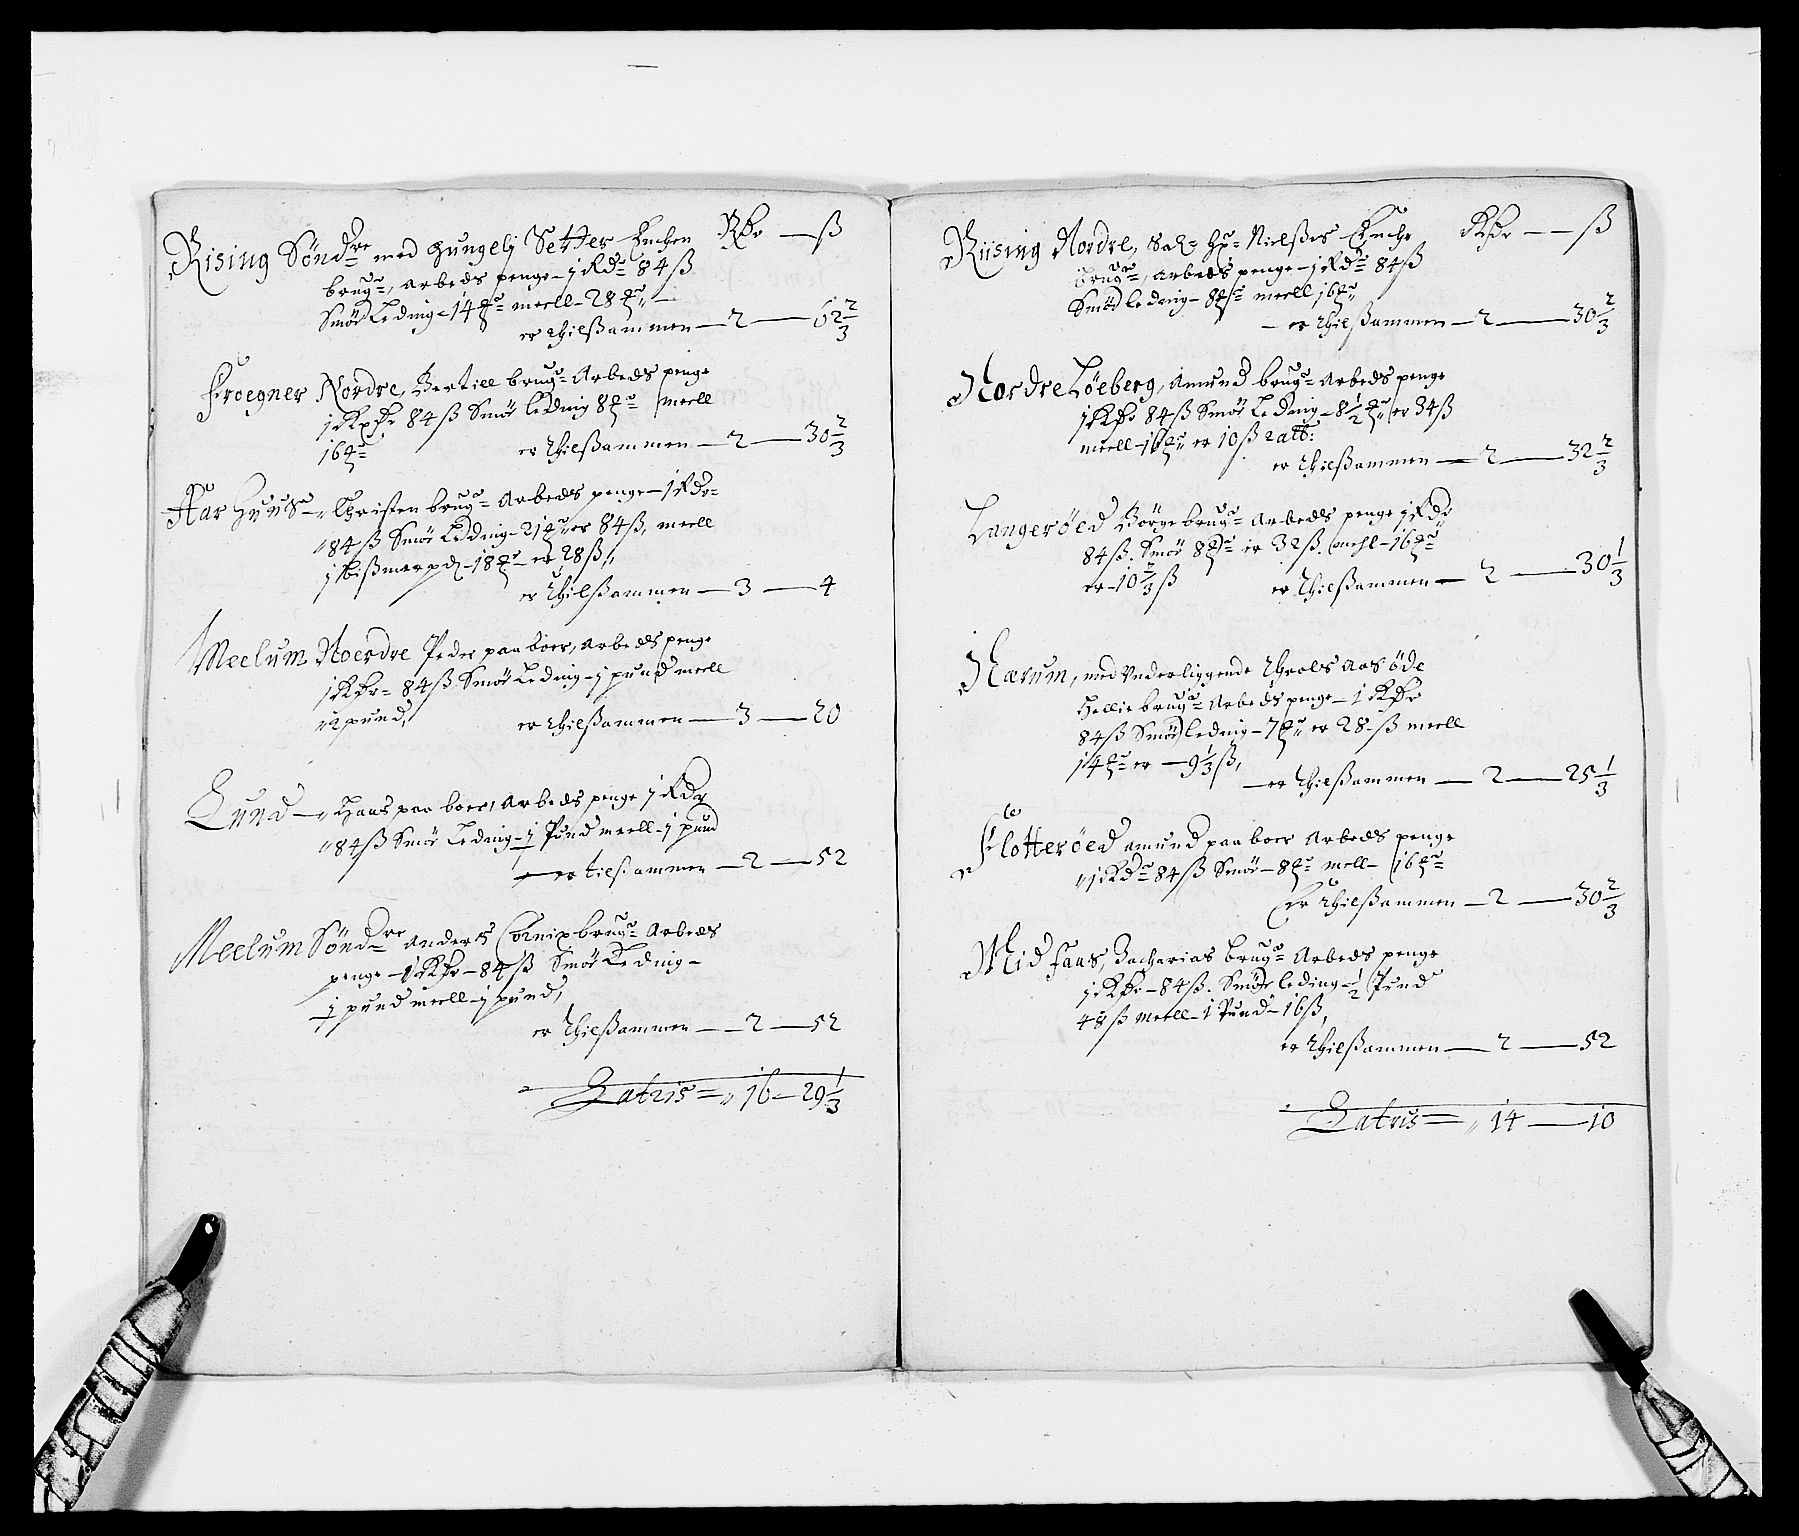 Rising Søndre med gungelj Setter Enchen Rdr — ß
brugr, arbeds penge - j Rdr 84 ß
Smør Leding - 14 mrk meell - 28 mrk
er thilßammen — 2 — 62 2/3
Froegner Nordre, Bertill brugr Arbeds penge
j Rdr 84 ß Smør leding 8 mrk meell
16 mrk er thilßammen — 2 — 30 2/3
Aar huus — Christen brugr Arbeds penge - 1 Rdr
84 ß Smør Leding - 21 mrk er 84 ß, meell
j bißmerpd - 18 mrk er 28 ß
er thilßammen — 3 — 4
Meelum Noerdre Peder paaboer, arbeds penge
j Rdr 84 ß Smør Leding - j pund meell
2 pund, er thilßammen — 3 — 20
Lund — Hans paaboer, arbeds penge j Rdr
84 ß Smør Leding - ½ Pund meell - j pund
er tilsammen — 2 — 52
Meelum Søndre anders Cornix brugr Arbeds
penge - 1 Rdr - 84 ß Smør Leding -
½ pund meell - j pund,
er thilßammen — 2 — 52
Latris = 16 — 29 1/3
Riising Nordre, Sal hr Nielßes Enche Rdr — ß
brugr, arbeds penge - j Rdr 84 ß
Smør leding - 8 mrk meell 16 mrk
er thilßammen — 2 — 30 2/3
Nordre Løeberg, Amund brugr Arbeds penge
j Rdr 84 ß Smør Leding - 8 1/2 mrk er 34 ß
meell - 16 mrk er 10 ß 2 alb:
er thilßammen — 2 — 32 2/3
Langerøed Børge brugr Arbeds penge j Rdr
84 ß. Smør 8 mrk er 32 ß. mehl - 16 mrk
er - 10 2/3 ß er thilßammen — 2 — 30 1/3
Nærum, med Underliggende Throls aas øde
Hellie brugr Arbeds penge - 1 Rdr
84 ß Smør leding - 7 mrk er 28 ß meell
14 mrk er — 9 1/3 ß,
er thilßammen — 2 — 25 1/3
Flotterøed amund paaboer Arbeds penge
j Rdr 84 ß Smør - 8 mrk mell - 16 mrk
Er thilßammen — 2 — 30 2/3
Mid faas, Zacharias brugr Arbeds penge
j Rdr - 84 ß. Smør leding - 1/2 Pund
48 ß meell - 1 Pund - 16 ß,
er thilßammen — 2 — 52
Latris = 14 — 10